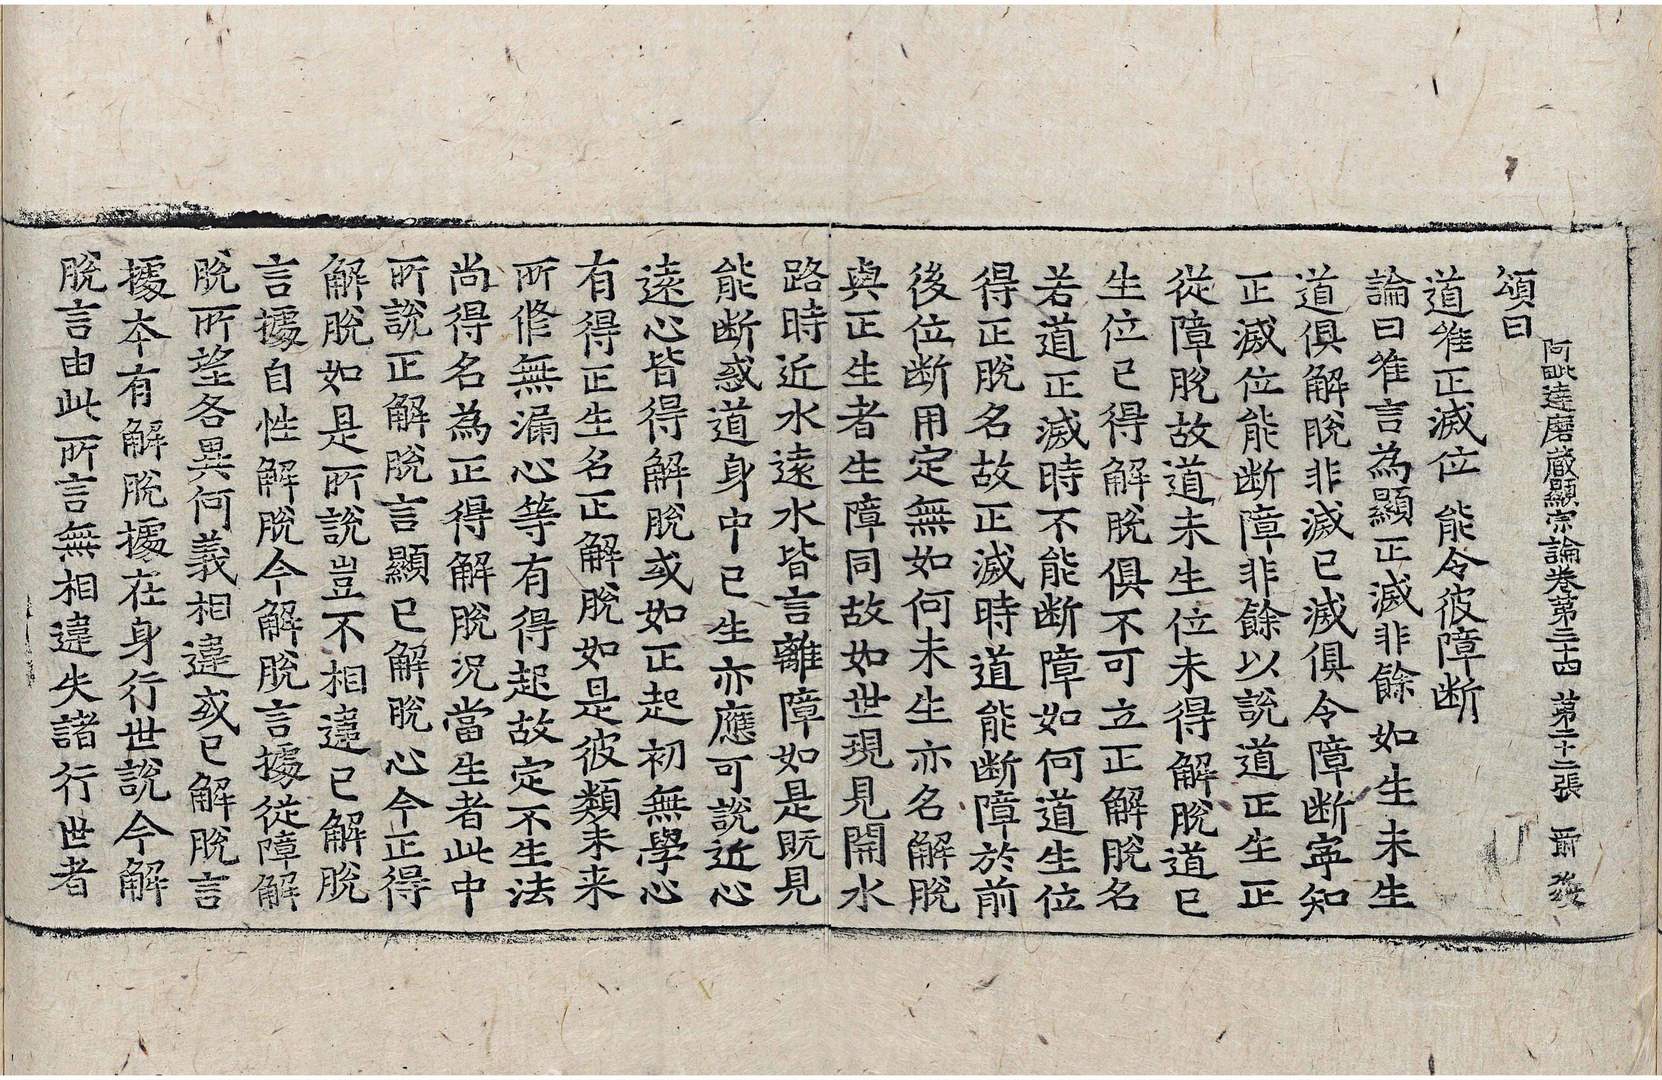 阿毗達磨藏顯宗論卷第三十四 第二十二張 爵
頌曰
道唯正滅位 能令彼障斷
論曰唯言為顯正滅非餘如生未生
道俱解脫非滅已滅俱令障斷寧知
正滅位能斷障非餘以說道正生正
從障脫故道未生位未得解脫道已
生位已得解脫俱不可立正解脫名
若道正滅時不能斷障如何道生位
得正脫名故正滅時道能斷障於前
後位斷用定無如何未生亦名解脫
與正生者生障同故如世現見開水
路時近水遠水皆言離障如是既見
能斷惑道身中已生亦應可說近心
遠心皆得解脫或如正起初無學心
有得正生名正解脫如是彼類未来
所修無漏心等有得起故定不生法
尚得名為正得解脫况當生者此中
所說正解脫言顯已解脫心今正得
解脫如是所說豈不相違已解脫
言據自性解脫今解脫言據從障解
脫所望各異何義相違或已解脫言
據本有解脫據在身行世說今解
脫言由此所言無相違失諸行世者